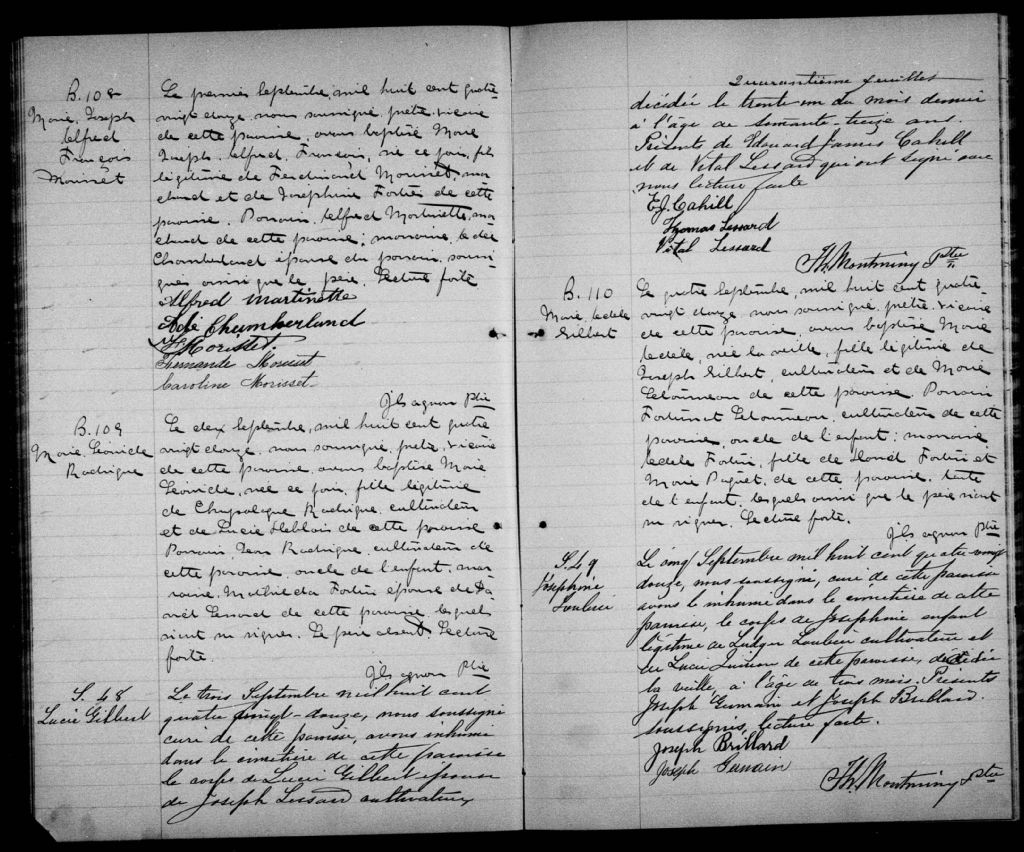 B. 108
Marie, Joseph
Alfred
François
Morisset
Le premier Septembre, mil huit cent quatre-
vingt douze, nous soussigné, prêtre, vicaire
de cette paroisse, avons baptisé Marie
Joseph, Alfred, François, né ce jour, fils
légitime de Ferdinand Morisset, mar-
chand et de Joséphine Fortier de cette
paroisse. Parrain, Alfred Martinette, mar-
chand de cette paroisse; marraine, Adèle
Chamberland épouse du parrain, soussi-
gnés ainsi que le père. Lecture faite
Alfred Martinette
Adèle Chamberland
F Morisset.
Fernande Morisset
Caroline Morisset
Jls agnon Ptre
B. 109
Marie, Léonide
Rodrigue
Le deux Septembre, mil huit cent quatre
vingt douze, nous soussigné, prêtre, vicaire
de cette paroisse, avons baptisé Marie
Léonide, née ce jour, fille légitime
de Chrysologue Rodrigue, cultivateur
et de Lucie Leblais de cette paroisse
Parrain Jean Rodrigue, cultivateur de
cette paroisse, oncle de l'enfant, mar-
raine, Mathilda Fortier épouse de Da-
niel Lessard de cette paroisse lesquels
n'ont su signer. Le père absent Lecture
faite.
Jls agnon Ptre
S. 48
Lucie Gilbert
Le trois Septembre mil huit cent
quatre vingt-douze, nous soussigné
curé de cette paroisse, avons inhumé
dans le cimetière de cette paroisse
le corps de Lucie Gilbert épouse
de Joseph Lessard cultivateur,
Quarantième feuillet
décédée le trente-un du mois dernier
à l'âge de soixante-treize ans.
Présents de Edouard James Cahill
et de Vital Lessard qui ont signé avec
nous lecture faite
E.J. Cahill
Thomas Lessard
Vital Lessard
Th. Montminy Ptre
B. 110
Marie Adèle
Gilbert
Le quatre Septembre, mil huit cent quatre-
vingt douze, nous soussigné, prêtre, vicaire
de cette paroisse, avons baptisé Marie
Adèle, née la veille, fille légitime de
Joseph Gilbert, cultivateur et de Marie
Létourneau de cette paroisse. Parrain
Fortunat Létourneau, cultivateur de cette
paroisse, oncle de l'enfant; marraine
Adèle Fortier, fille de David Fortier et
Marie Paquet, de cette paroisse, tante
de l'enfant, lesquels ainsi que le père n'ont
su signer. Lecture faite.
Jls agnon Ptre
S. 49
Joséphine
Loubier
Le cinq Septembre mil huit cent quatre-vingt
douze, nous soussigné, curé de cette paroisse
avons inhumé dans le cimetière de cette
paroisse, le corps de Joséphine enfant
légitime de Ludger Loubier cultivateur et
de Lucie de cette paroisse, décédée
la veille, à l'âge de trois mois. Présents
Joseph Germain et Joseph Brillard
soussignés, lecture faite.
Joseph Brillard
Joseph Germain
Th. Montminy Ptre